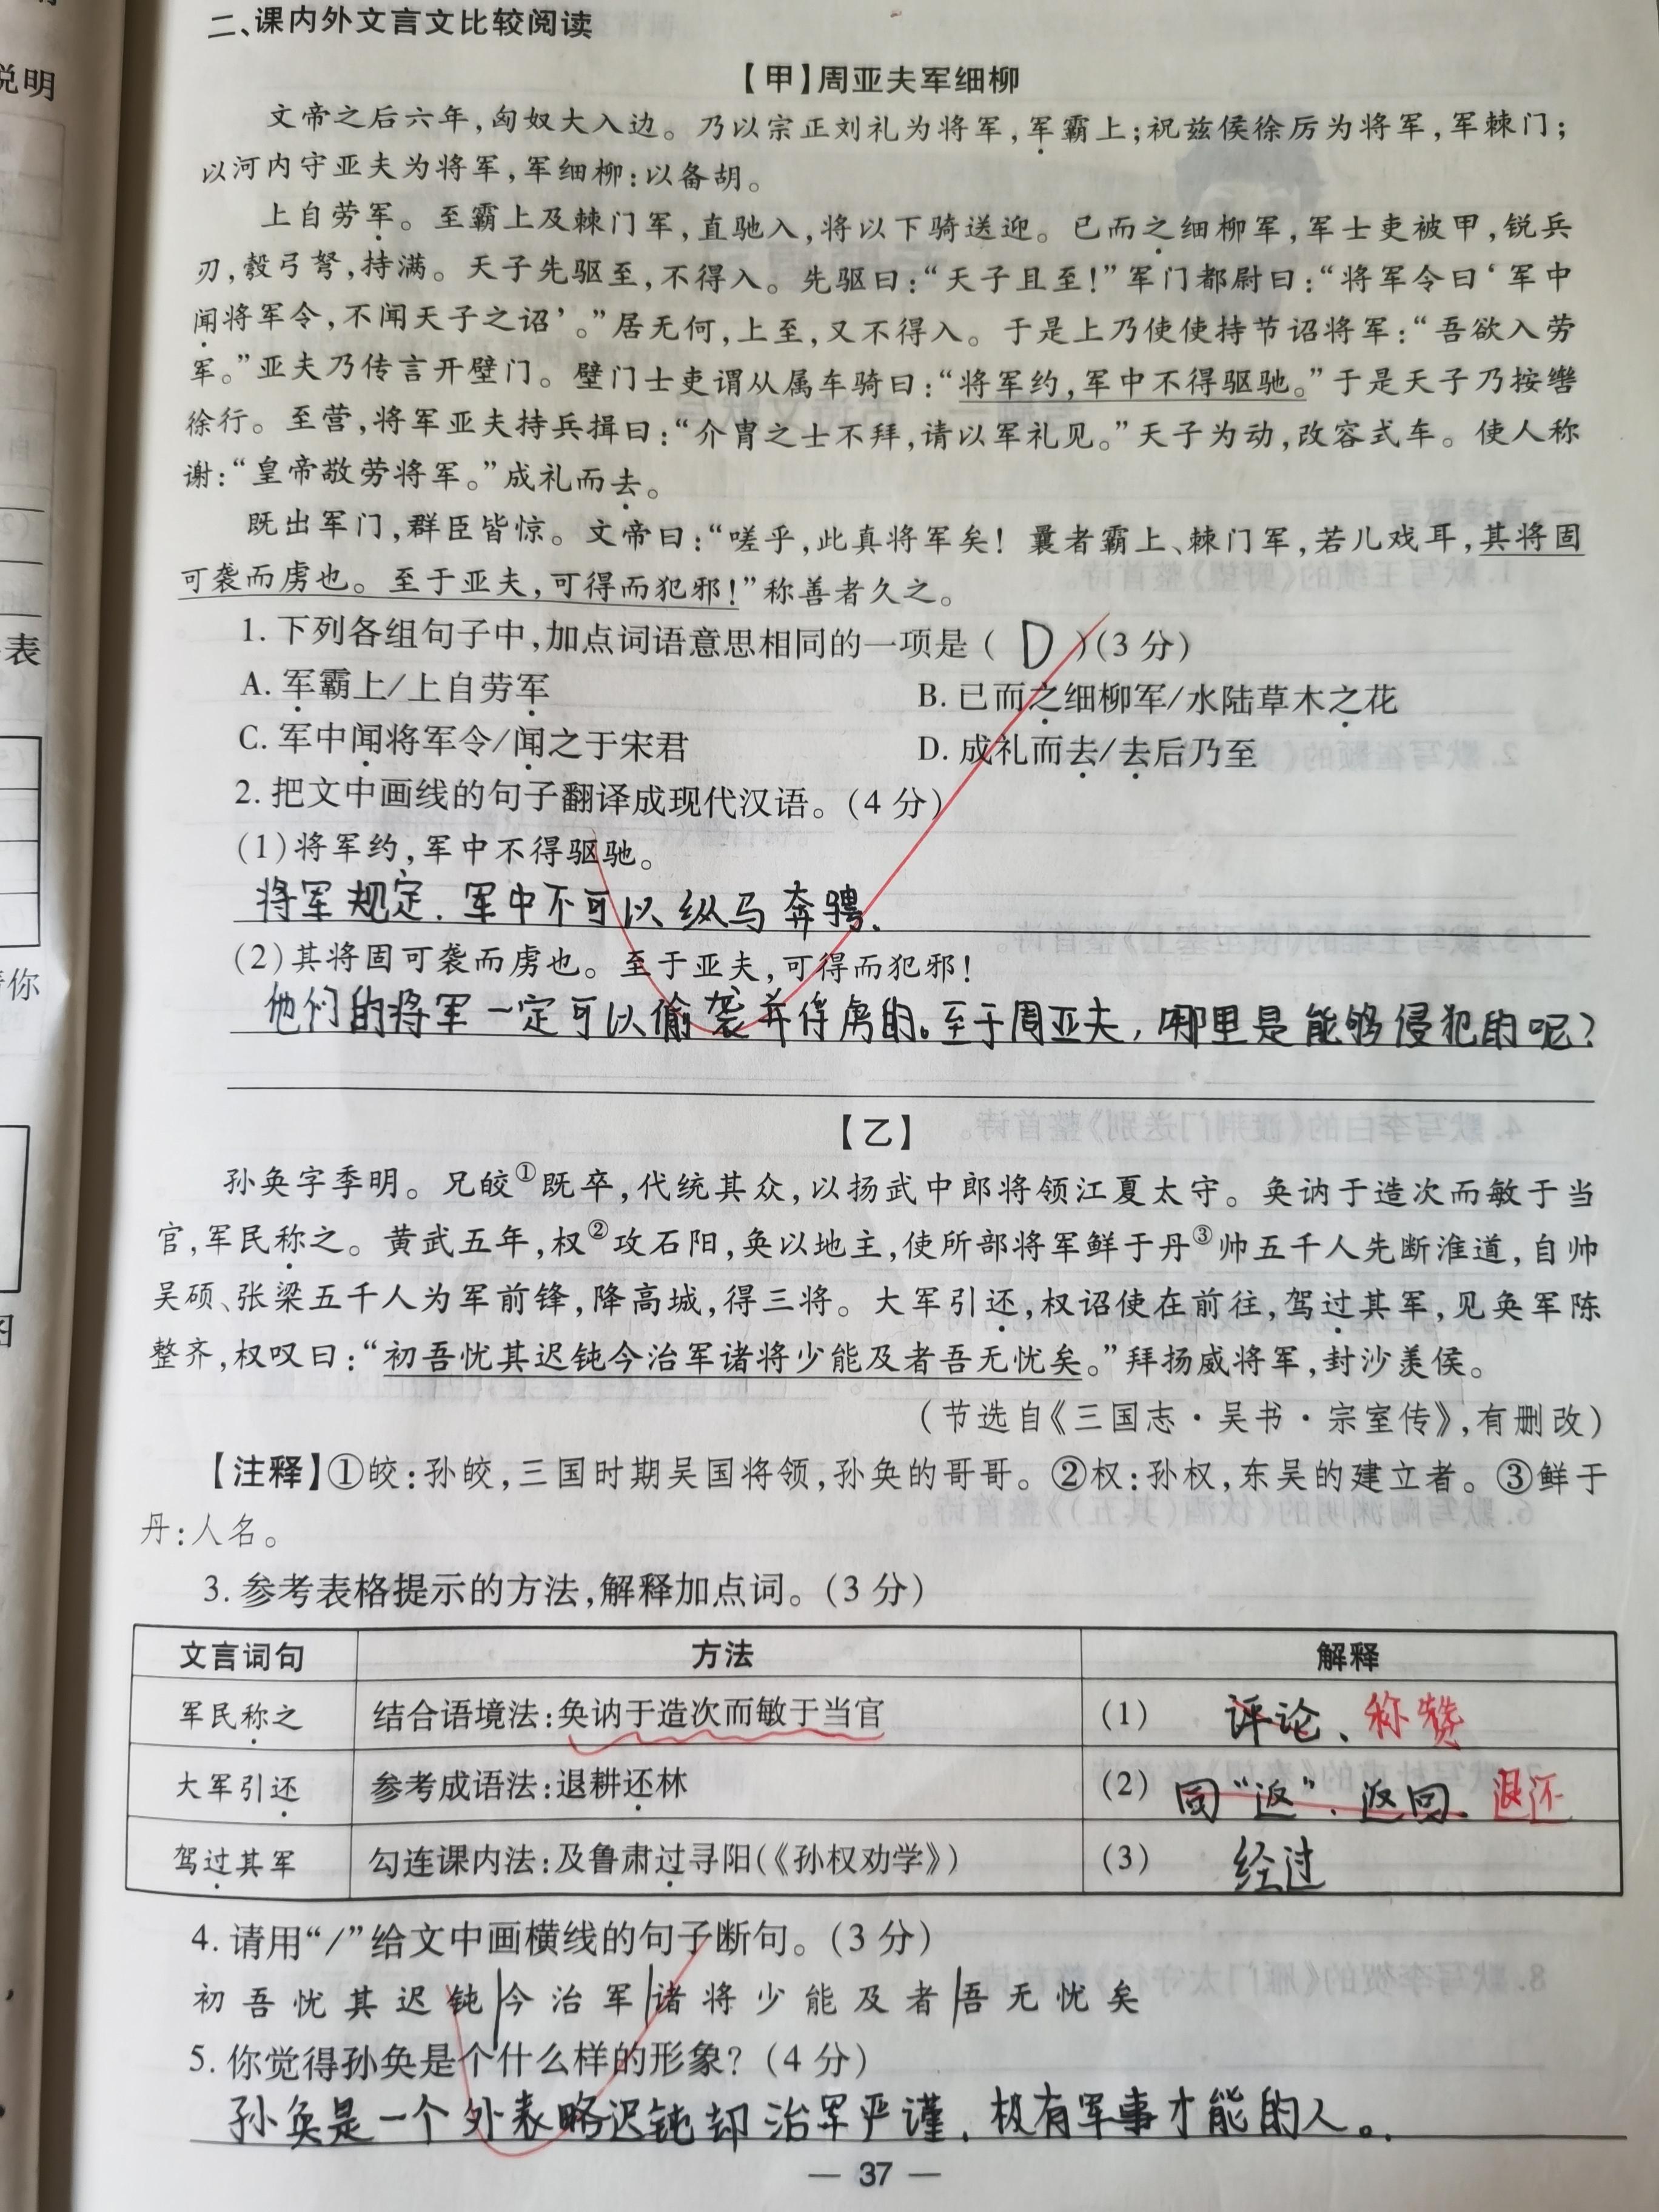 说明
表
你
图
二、课内外文言文比较阅读
【甲】周亚夫军细柳
文帝之后六年,匈奴大入边。乃以宗正刘礼为将军,军霸上;祝兹侯徐厉为将军,军棘门;
以河内守亚夫为将军,军细柳:以备胡。
上自劳军。至霸上及棘门军,直驰入,将以下骑送迎。已而之细柳军,军士吏被甲,锐兵
刃,彀弓弩,持满。天子先驱至,不得入。先驱曰:“天子且至!”军门都尉曰:“将军令曰‘军中
闻将军令,不闻天子之诏’。”居无何,上至,又不得入。于是上乃使使持节诏将军:“吾欲入劳
军。”亚夫乃传言开壁门。壁门士吏谓从属车骑曰:“将军约,军中不得驱驰。”于是天子乃按辔
徐行。至营,将军亚夫持兵揖曰:“介胄之士不拜,请以军礼见。”天子为动,改容式车。使人称
谢:“皇帝敬劳将军。”成礼而去。
既出军门,群臣皆惊。文帝曰:“嗟乎,此真将军矣!曩者霸上、棘门军,若儿戏耳,其将固
可袭而虏也。至于亚夫,可得而犯邪!”称善者久之。
1. 下列各组句子中,加点词语意思相同的一项是( D )(3 分)
A. 军霸上/上自劳军 B. 已而之细柳军/水陆草木之花
C. 军中闻将军令/闻之于宋君 D. 成礼而去/去后乃至
2. 把文中画线的句子翻译成现代汉语。(4 分)
(1)将军约,军中不得驱驰。
将军规定.军中不可以纵马奔骋.
(2)其将固可袭而虏也。至于亚夫,可得而犯邪!
他们的将军一定可以偷袭并俘虏的。至于周亚夫,哪里是能够侵犯的呢?
【乙】
孙奂字季明。兄皎①既卒,代统其众,以扬武中郎将领江夏太守。奂讷于造次而敏于当
官,军民称之。黄武五年,权②攻石阳,奂以地主,使所部将军鲜于丹③帅五千人先断淮道,自帅
吴硕、张梁五千人为军前锋,降高城,得三将。大军引还,权诏使在前往,驾过其军,见奂军陈
整齐,权叹曰:“初吾忧其迟钝今治军诸将少能及者吾无忧矣。”拜扬威将军,封沙羡侯。
(节选自《三国志·吴书·宗室传》,有删改)
【注释】①皎:孙皎,三国时期吴国将领,孙奂的哥哥。②权:孙权,东吴的建立者。③鲜于
丹:人名。
3. 参考表格提示的方法,解释加点词。(3 分)
文言词句 方法 解释
军民称之 结合语境法:奂讷于造次而敏于当官 (1) 评论、称赞
大军引还 参考成语法:退耕还林 (2) 同“返”.返回. 退还
驾过其军 勾连课内法:及鲁肃过寻阳(《孙权劝学》) (3) 经过
4. 请用“/”给文中画横线的句子断句。(3 分)
初吾忧其迟钝|今治军|诸将少能及者|吾无忧矣
5. 你觉得孙奂是个什么样的形象?(4 分)
孙奂是一个外表略迟钝却治军严谨.极有军事才能的人。
— 37 —